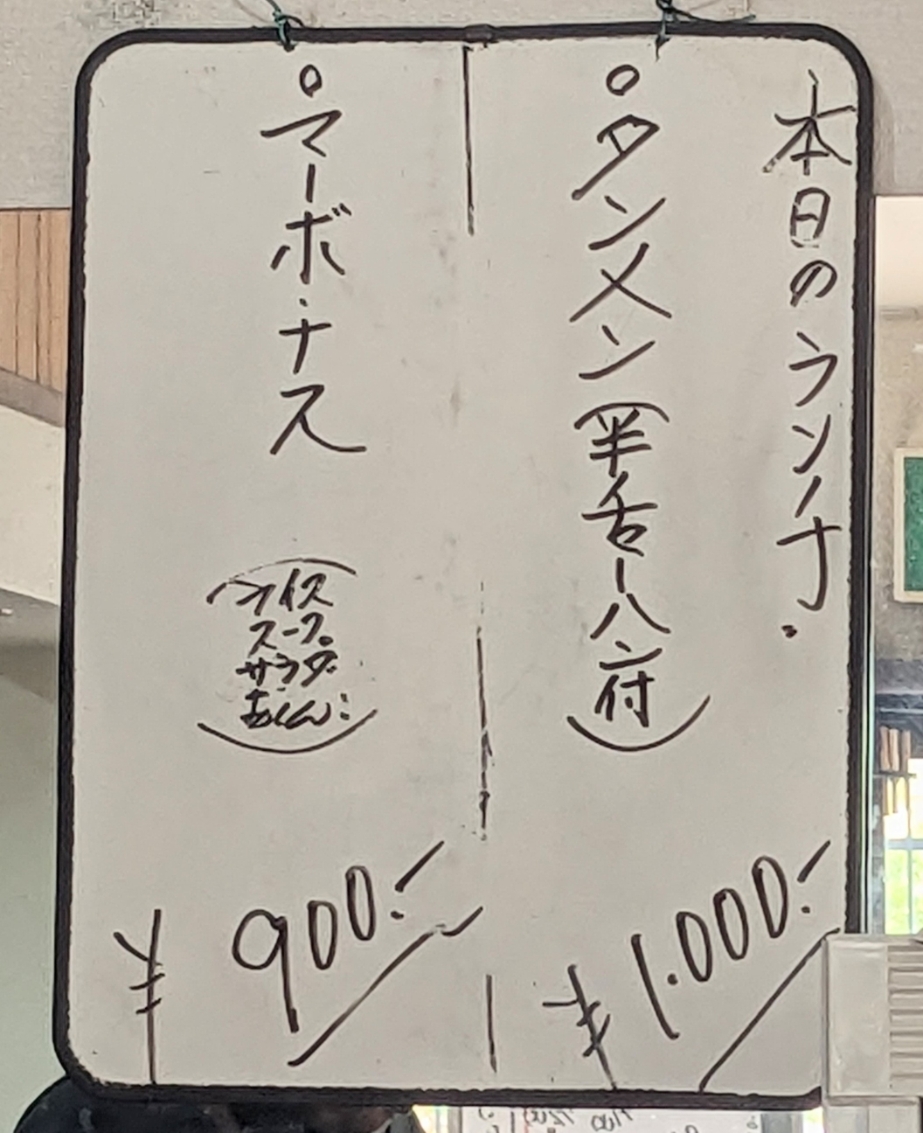 本日のランチ.
○タンメン(半チャーハン付)
¥1.000.-
○マーボナス
(ライス
スープ
サラダ
おしんこ)
¥900.-